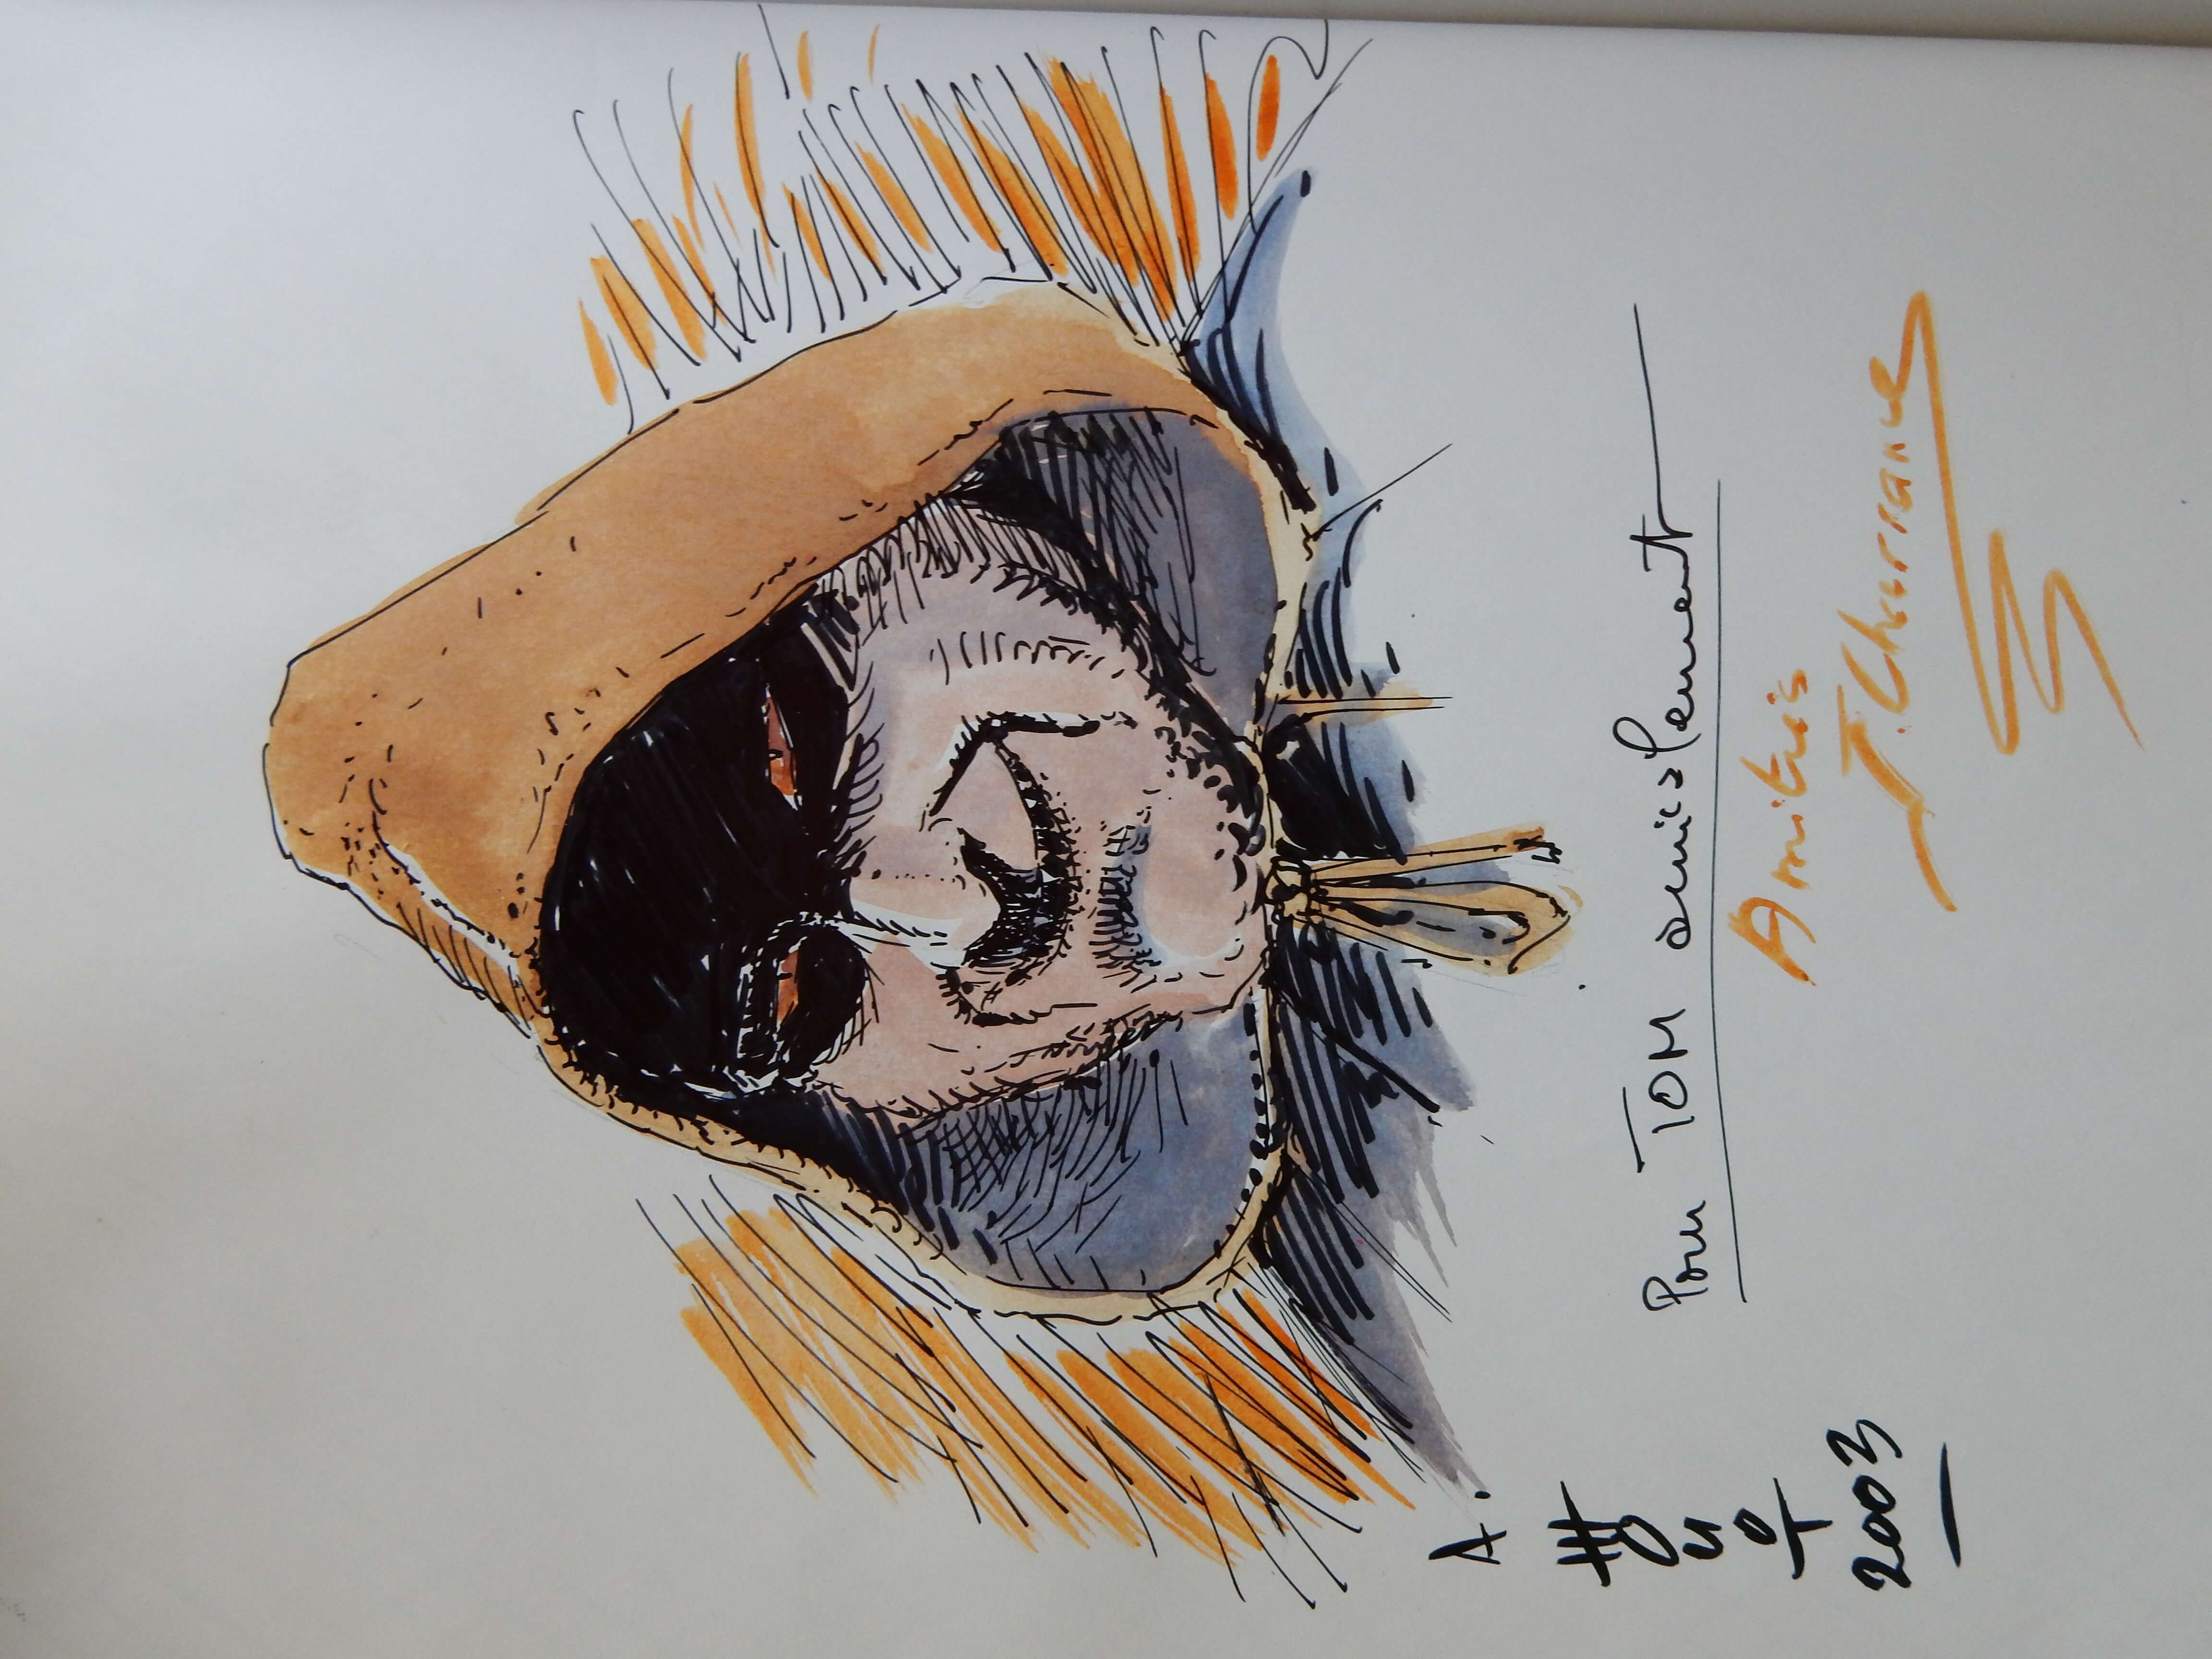 A.
HOUOT
2003
Pour TOM amicalement
Amitiés
J. Charrance